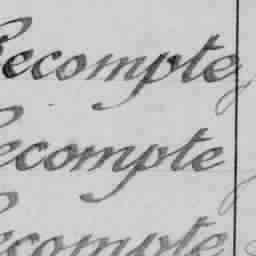 Lecompte
Lecompte
Lecompte